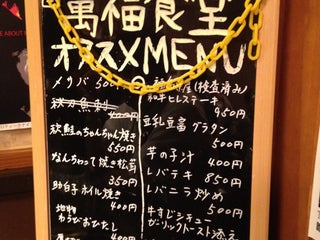 萬福食堂
オススメMENU
メリバ 500
秋刀魚刺
400円
秋鮭のちゃんちゃん焼き
550円
なんちゃって焼き松茸
350円
助白子ホイル焼き
400円
地物
わらびおひたし
400円
(検査済み)
和牛ヒレステーキ
950円
豆乳豆腐グラタン
500円
芋の子汁
400円
レバテキ 850円
レバニラ炒め
500円
牛すじシチュー
ガーリックトースト添え